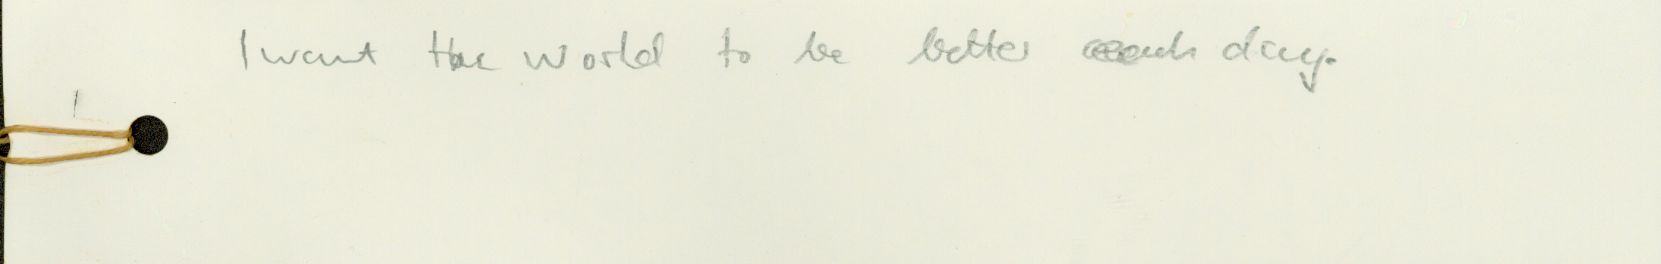 I want the world to be better each day.